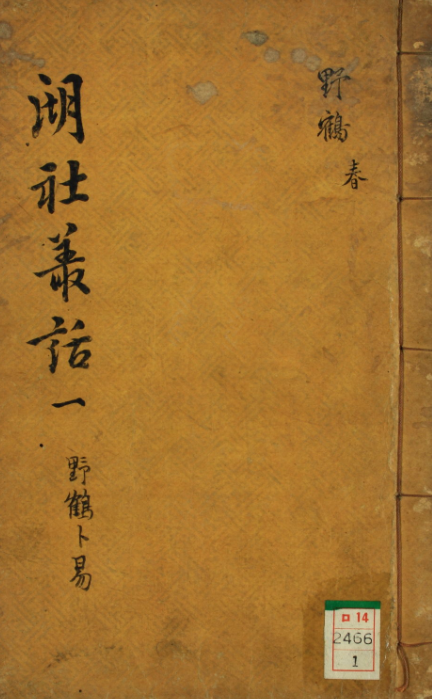 野鶴 春
湖社叢話一
野鶴卜易
ロ 14
2466
1